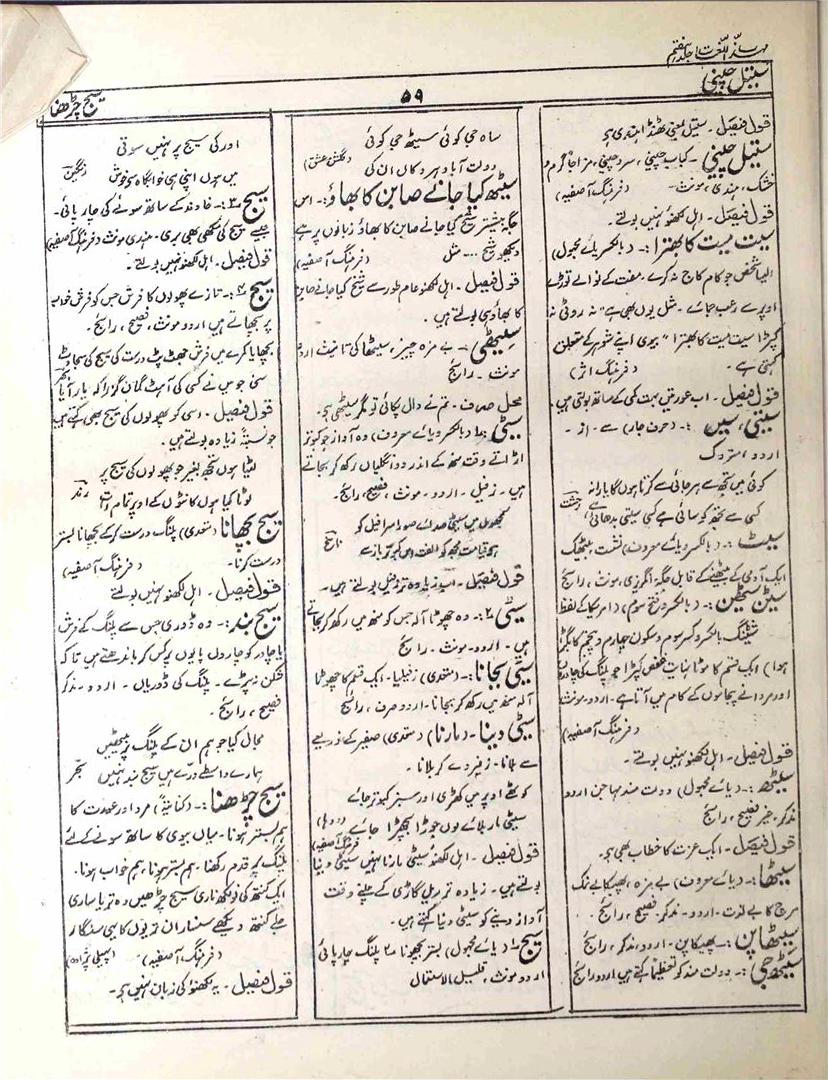 مہذب اللغات جلد ہفتم
سیتل چینی
۵۹
سیج چڑھنا
قول فیصل۔ سیتل یعنی ٹھنڈا ہندی ہے
سیتل چینی۔ کباب چینی، سرد چینی، مزاجاً گرم و
خشک، ہندی، مونث۔ (فرہنگ آصفیہ)
قول فیصل۔ اہل لکھنؤ نہیں بولتے۔
سیت میت کا بھترا:۔ (بالکسر یائے مجہول)
ایسا شخص جو کام کاج نہ کرے۔ مفت کے نوالے توڑے
اوپر سے رعب جمائے۔ مثل یوں بھی ہے "نہ روٹی نہ
کپڑا سیت میت کا بھترا" بیوی اپنے شوہر کے متعلق
کہتی ہے۔ (فرہنگ اثر)
قول فیصل۔ اب عورتیں بہت کمی کے ساتھ بولتی ہیں۔
سیتی، سیں:۔ (حرف جار) سے۔ از۔
اردو، متروک
کوئی میں تجھ سے ہرجائی سے کرتا ہوں گا یارانہ
کسی سے تجھ کو سانی ہے کسی سیتی بدھائی ہے
سیٹ:۔ (بالکسر و یائے معروف) نشست، بیٹھک
ایک آدمی کے بیٹھنے کے قابل جگہ انگریزی، مونث، رائج
سیٹن سیٹن:۔ (بالکسر و فتح سوم، امریکا کے لفظ
شٹینگ بالکسر و کسر سوم و سکون چہارم و پنجم کا بگڑا
ہوا) ایک قسم کا موٹا نہایت کپڑا جو پلنگ کی چادروں
اور مردانے پجاموں کے کام میں آتا ہے۔ اردو۔ مونث
(فرہنگ آصفیہ)
قول فیصل۔ اہل لکھنؤ نہیں بولتے۔
سیٹھ:۔ (یائے مجہول) دولت مند مہاجن اردو
مذکر، غیر فصیح، رائج
قول فیصل۔ ایک عزت کا خطاب بھی ہے۔
سیٹھا:۔ (یائے معروف) بے مزہ، پھیکا بے نمک
مرچ کا بے لوث۔ اردو۔ مذکر، فصیح، رائج۔
سیٹھا پن:۔ پھیکا پن۔ اردو، مذکر، رائج
سیٹھ جی:۔ دولت مند کو تعظیماً کہتے ہیں اردو رائج
ساہ جی کوئی سیٹھ جی کوئی
دولت آباد ہر دکاں ان کی (گلشن عشق)
سیٹھ کیا جانے صابن کا بھاؤ:۔ اس
جگہ بیشتر شیخ کیا جانے صابن کا بھاؤ زبانوں پر ہے
دیکھو شیخ .... مثل (فرہنگ آصفیہ)
قول فیصل۔ اہل لکھنؤ عام طور سے شیخ کیا جانے صابن
کا بھاؤ ہی بولتے ہیں۔
سیٹھی:۔ بے مزہ چیز، سیٹھا کی تانیث اردو
مونث۔ رائج
محل صرف۔ تم نے دال پکائی تو مگر سیٹھی ہے۔
سیٹی ۱:۔ (بالکسر و یائے معروف) وہ آواز جو کبوتر
اڑاتے وقت منہ کے اندر دو انگلیاں رکھ کر بجاتے
ہیں۔ زفیل۔ اردو۔ مونث، فصیح، رائج۔
سمجھوں میں سیٹی صدائے صور اسرافیل کو
ہو قیامت مجھ کو الفت اس کبوتر باز سے ناسخ
قول فیصل۔ اسے زیادہ تر زفیل بولتے ہیں۔
سیٹی ۲:۔ وہ چھوٹا آلہ جس کو منہ میں رکھ کر بجاتے
ہیں۔ اردو۔ مونث۔ رائج
سیٹی بجانا:۔ (متعدی) زفیلیا۔ ایک قسم کا چھوٹا
آلہ منہ میں رکھ کر بجانا۔ اردو صرف، رائج
سیٹی دینا۔ (مارنا) (متعدی) صفیر کے ذریعے
سے بلانا۔ زفیر دے کر بلانا۔
کوٹھے اوپر میں کھڑی اور سبز کبوتر جائے
سیٹی مار بلائے لوں جوڑا بچھڑا جائے (دوہا) (فرہنگ آصفیہ)
قول فیصل۔ اہل لکھنؤ سیٹی مارنا نہیں سیٹی دینا
بولتے ہیں۔ زیادہ تر ریل گاڑی کے چلتے وقت
آواز دینے کو سیٹی دینا کہتے ہیں۔
سیج ۱۔ (یائے مجہول) بستر بچھونا ۲۔ پلنگ چارپائی
اردو مونث، قلیل الاستعمال
اور کی سیج پر نہیں سوتی
میں ہوں اپنی ہی خوابگاہ سے خوش رنگین
سیج ۳:۔ خاوند کے ساتھ سونے کی چارپائی۔
جیسے سیج کی مکھی بھی بری۔ ہندی مونث (فرہنگ آصفیہ)
قول فیصل۔ اہل لکھنؤ نہیں بولتے۔
سیج ۴:۔ تازے پھولوں کا فرش جس کو فرش خواب
پر بچھاتے ہیں اردو مونث، فصیح، رائج۔
بچھایا کرے میں فرش جھٹ پٹ درست کی سیج کی سجاوٹ
سنی جو میں نے کسی کی آہٹ گمان گزرا کہ یار آیا بحر
قول فیصل۔ اسی کو پھولوں کی سیج بھی کہتے ہیں
جو نسبتہً زیادہ بولتے ہیں۔
لٹیا ہوں تجھ بغیر جو پھولوں کی سیج پر
لوٹا کیا ہوں کانٹوں کے اوپر تمام رات رند
سیج بچھانا (متعدی) پلنگ درست کر کے بچھانا بستر
درست کرنا۔ (فرہنگ آصفیہ)
قول فیصل۔ اہل لکھنؤ نہیں بولتے
سیج بند:۔ وہ ڈوری جس سے پلنگ کے فرش
یا چادر کو چاروں پایوں پر کس کر باندھتے ہیں تاکہ
شکن نہ پڑے۔ پلنگ کی ڈوریاں۔ اردو۔ مذکر
فصیح، رائج۔
مجال کیا جو ہم ان کے پلنگ پر بیٹھیں
ہمارے واسطے درے ہیں سیج بند نہیں بحر
سیج چڑھنا:۔ (کنایۃً) مرد اور عورت کا
ہم بستر ہونا۔ میاں بیوی کا ساتھ سونے کے لئے
پلنگ پر قدم رکھنا۔ ہم بستر ہونا، ہم خواب ہونا۔
ایک کنتھ کی دو کھ ناری سیج چڑھیں وہ تریا ساری
جلے کنتھ دیکھے سنسار ان تریوں کا یہی سنگار
(فرہنگ آصفیہ) (پہیلی)
قول فیصل۔ یہ لکھنؤ کی زبان نہیں ہے۔